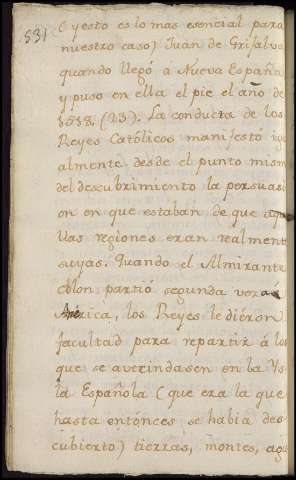 531
(y esto es lo mas esencial para
nuestro caso) Juan de Grijalva
quando llegó á Nueva España,
y puso en ella el pie el año de
1518. (23). La conducta de los
Reyes Católicos manifestó igu
almente desde el punto mism
del descubrimiento la persuasi
on en que estaban de que aqu
llas regiones eran realment
suyas. Quando el Almirante
Colon partió segunda vez á
América, los Reyes le diéron
facultad para repartir á los
que se avecindasen en la Ys
la Española (que era la que
hasta entónces se habia des
cubierto) tierras, montes, agu